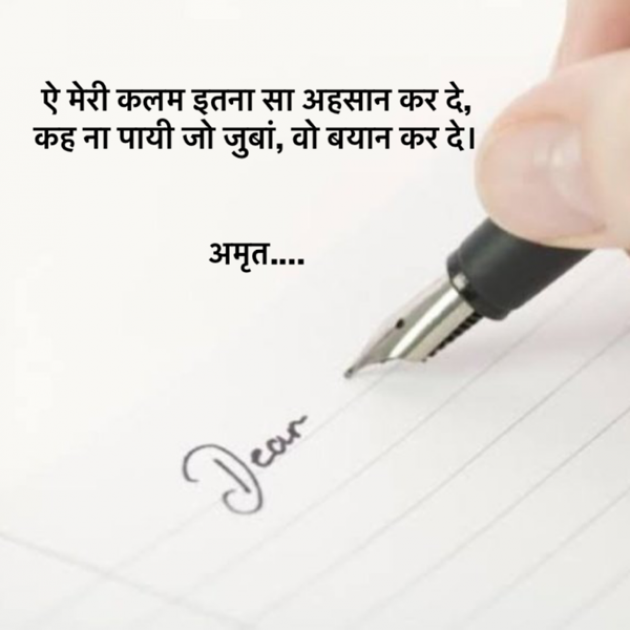 ऐ मेरी कलम इतना सा अहसान कर दे,
कह ना पायी जो जुबां, वो बयान कर दे।
अमृत....
Dear